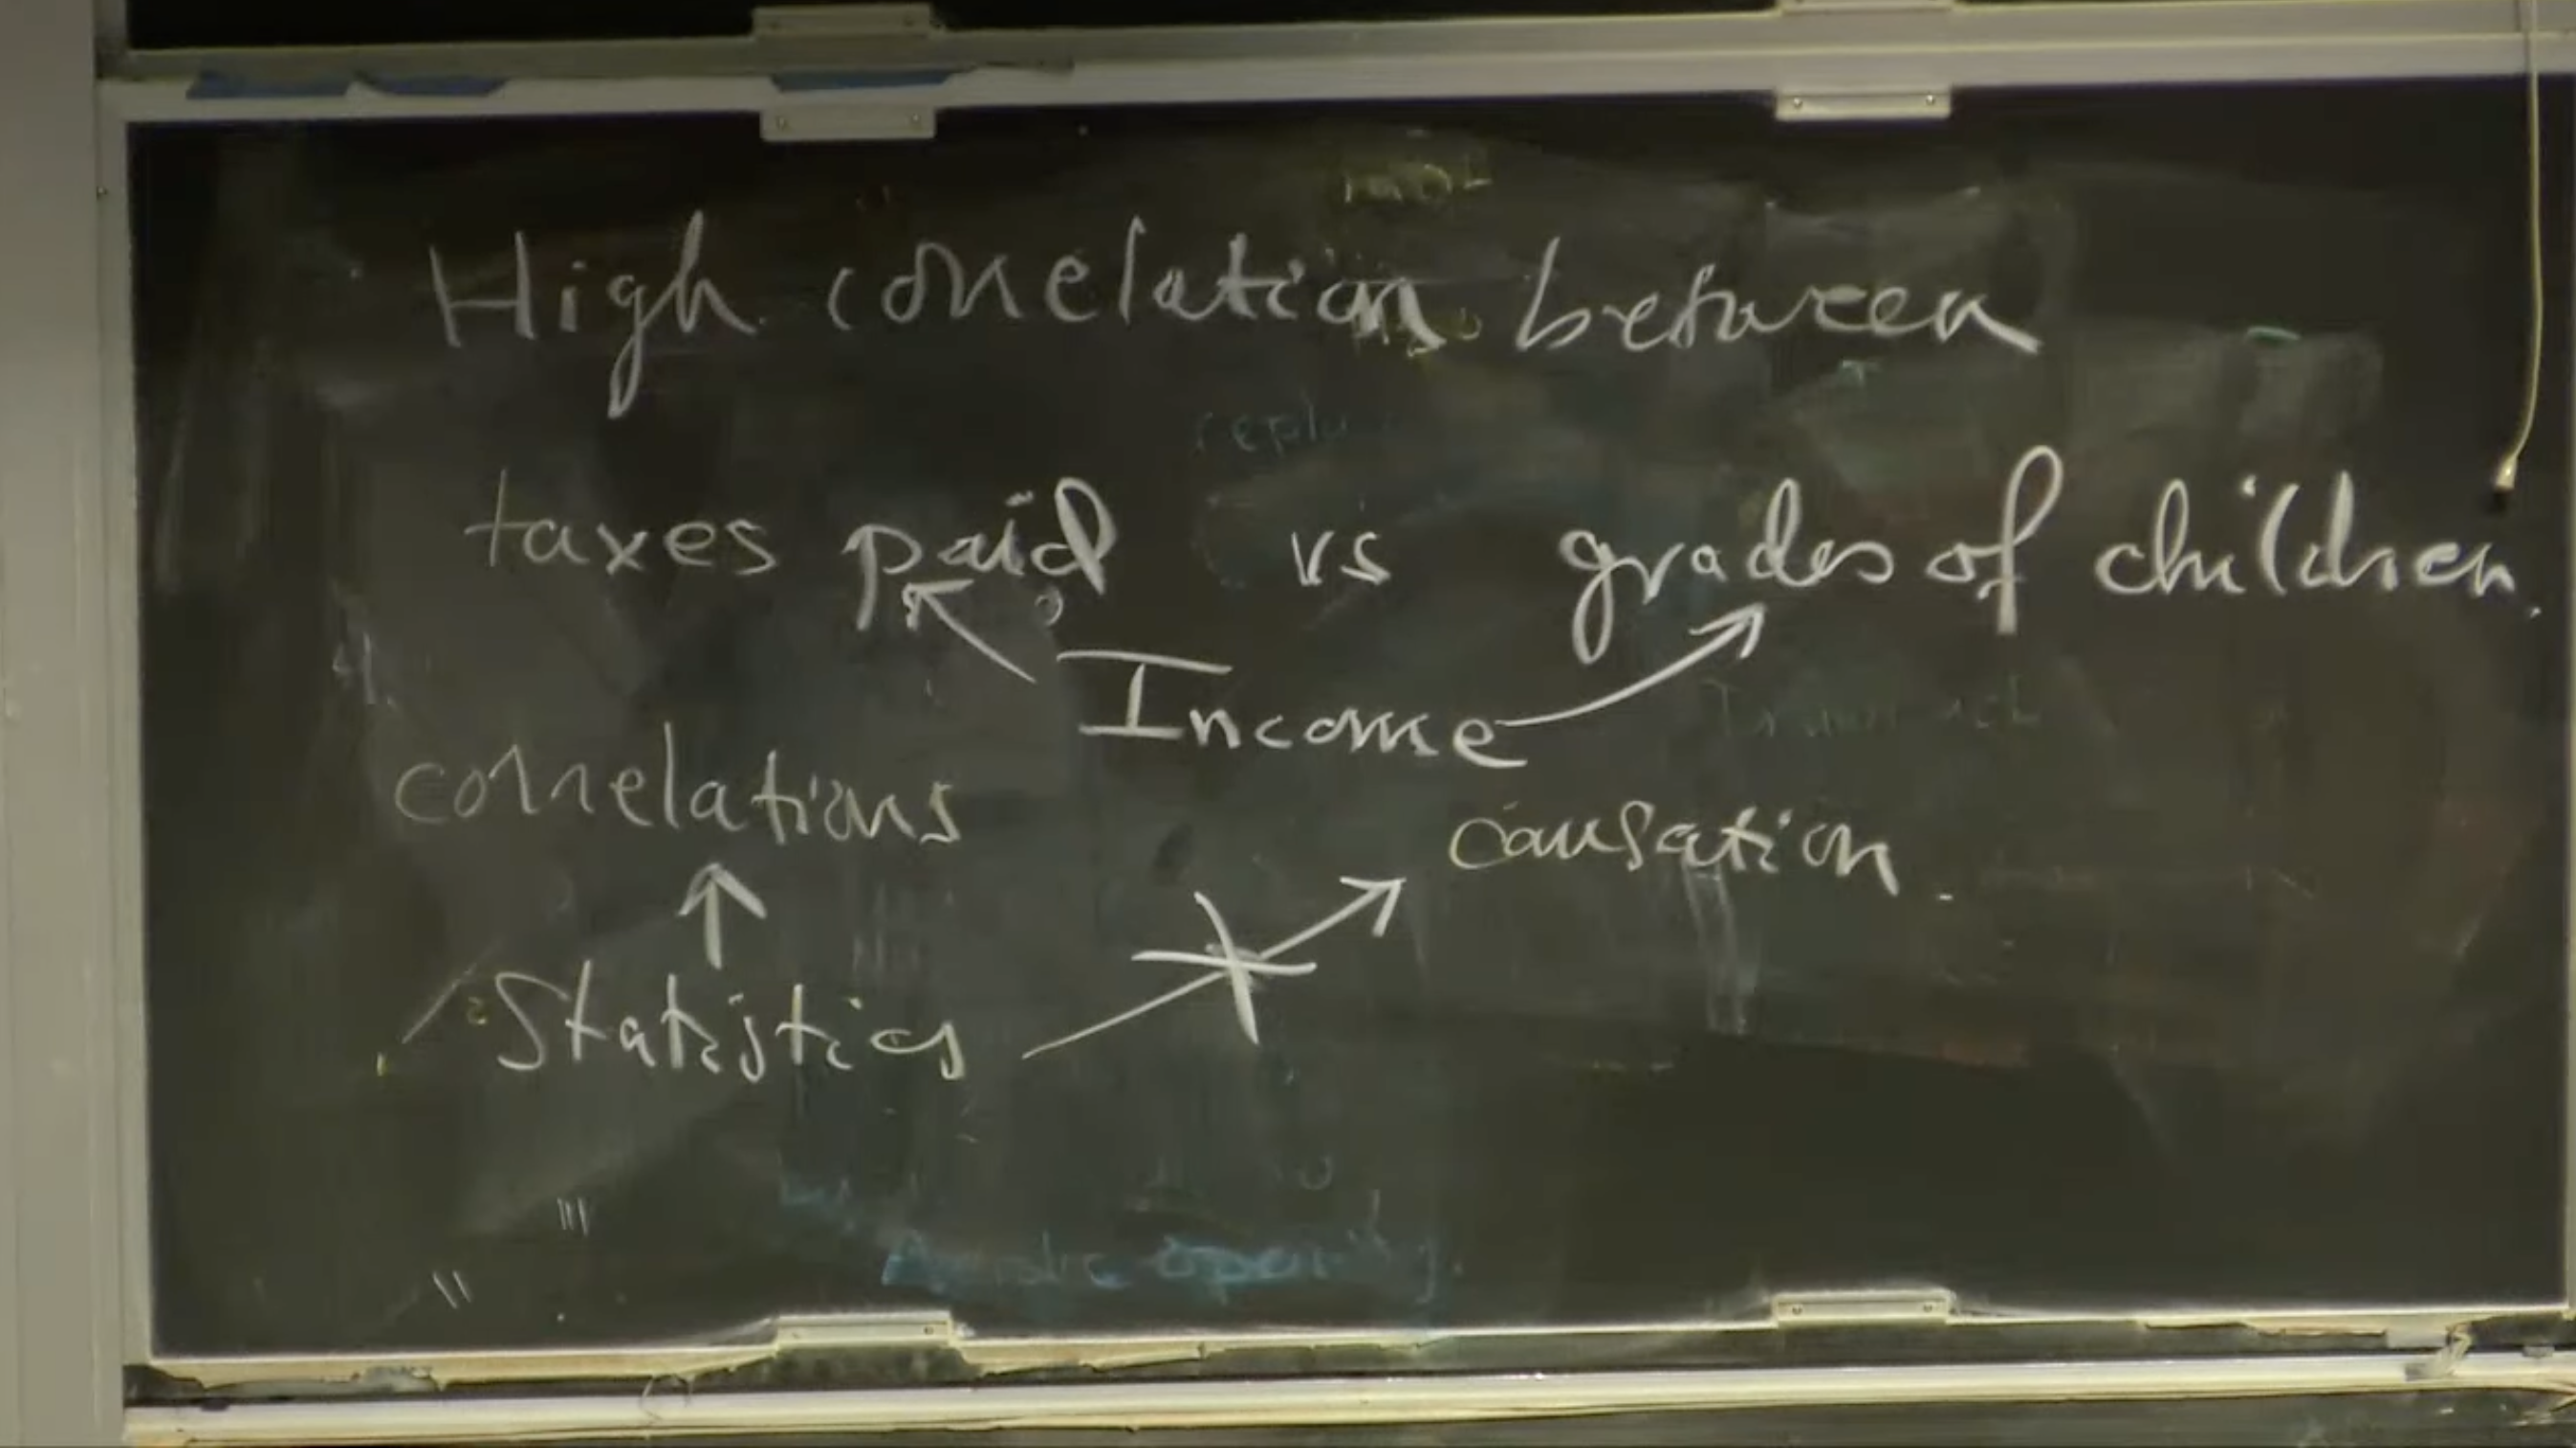 High correlation between
taxes paid vs grades of children.
Income
correlations
causation.
Statistics